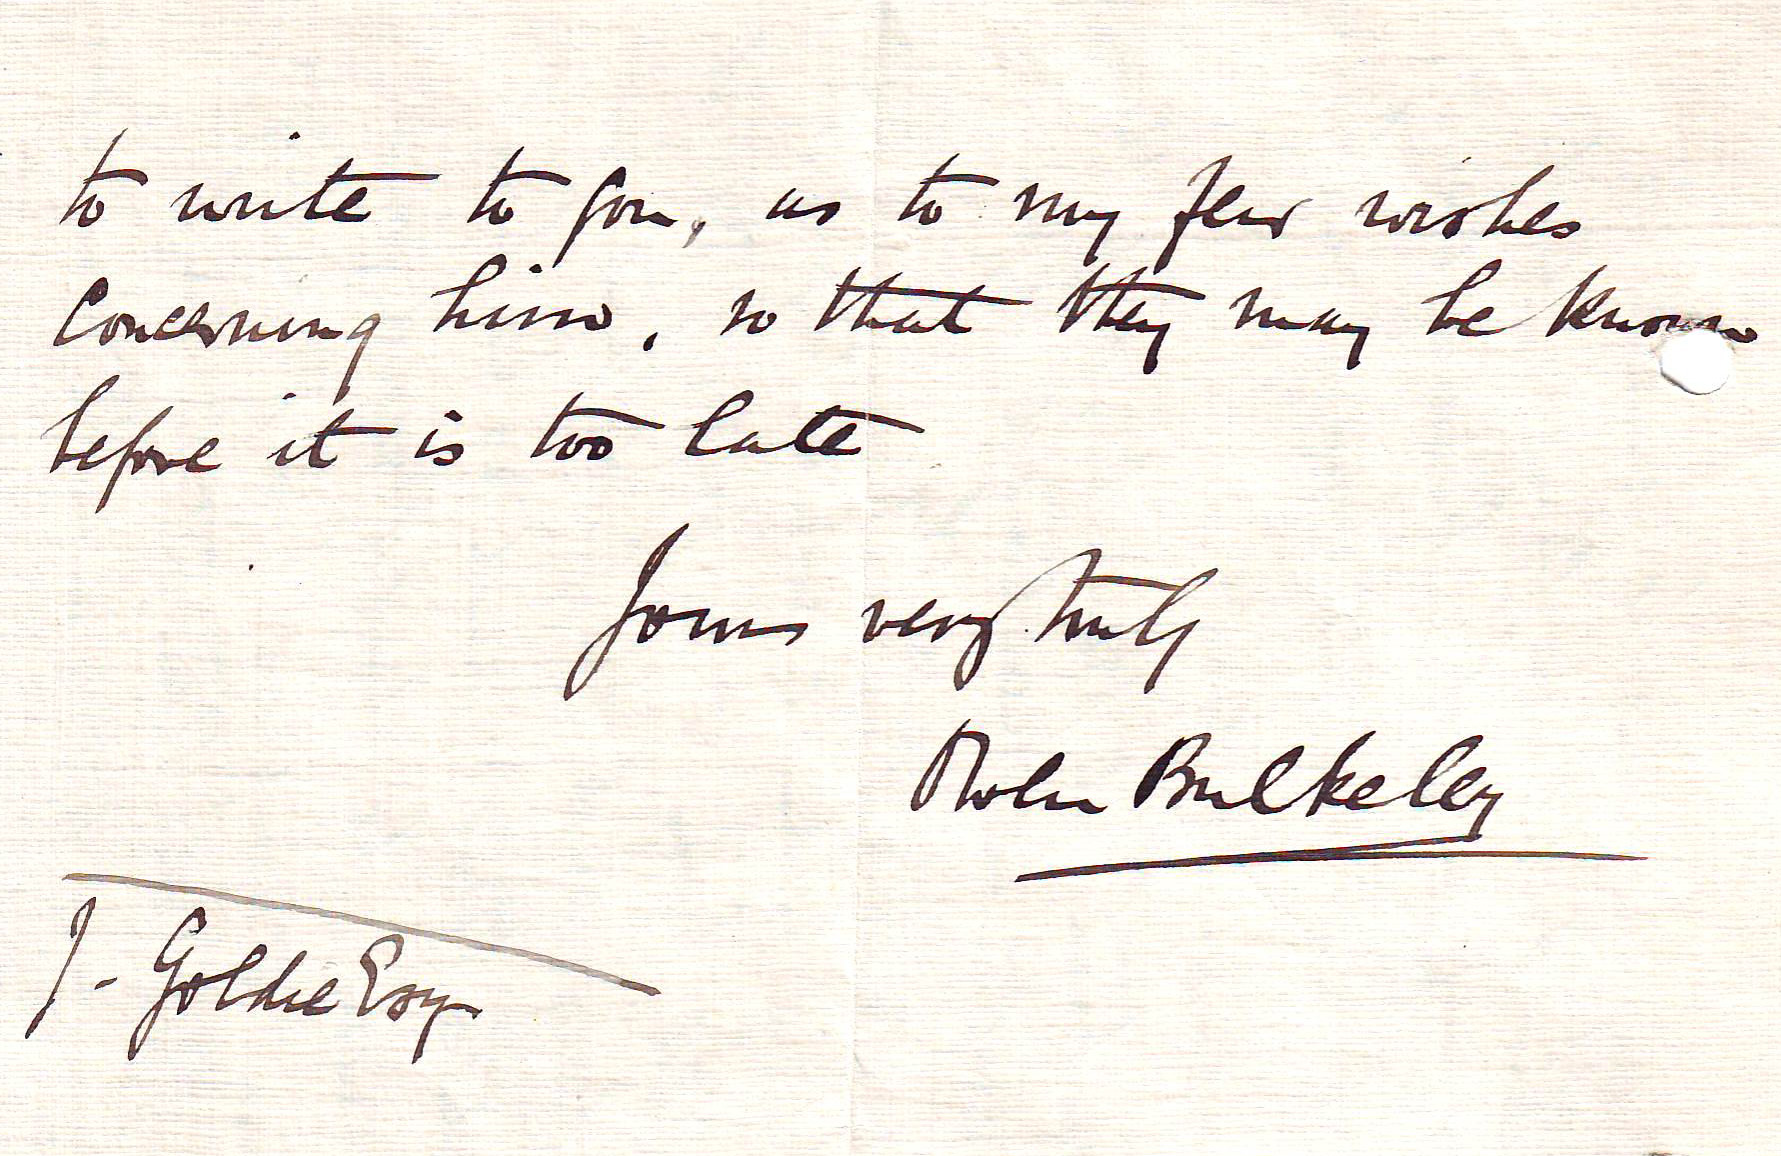 to write to you, as to my few wishes
concerning him, so that they may be known
before it is too late
Yours very truly
Bulkeley
J- Goldie Esqr